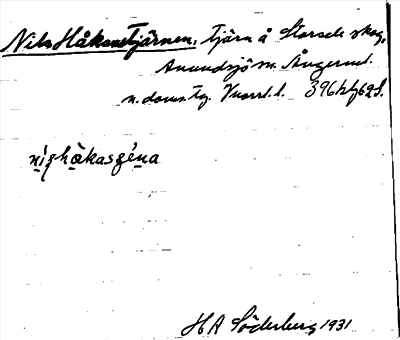 Nils Håkanstjärnen, tjärn å Storsele skog,
Anundsjö sn. Ångerml.
n. doms. tg. Vnorrl. l. 396 hf 62 S.
nishàkasʒéna
HA Söderberg 1931